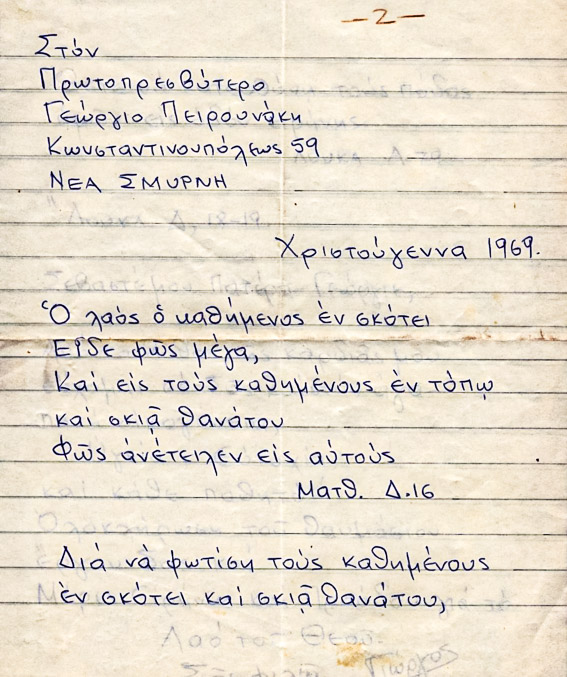 —2—
Στόν
Πρωτοπρεσβύτερο
Γεώργιο Πειρουνάκη
Κωνσταντινουπόλεως 59
ΝΕΑ ΣΜΥΡΝΗ
Χριστούγεννα 1969.
Ὁ λαός ὁ καθήμενος ἐν σκότει
Εἶδε φῶς μέγα,
Καί εἰς τούς καθημένους ἐν τόπῳ
καί σκιᾷ θανάτου
Φῶς ἀνέτειλεν εἰς αὐτούς
Ματθ. Δ.16
Διά νά φωτίση τούς καθημένους
ἐν σκότει καί σκιᾷ θανάτου,
Λαό τοῦ Θεοῦ.
Γιώργος